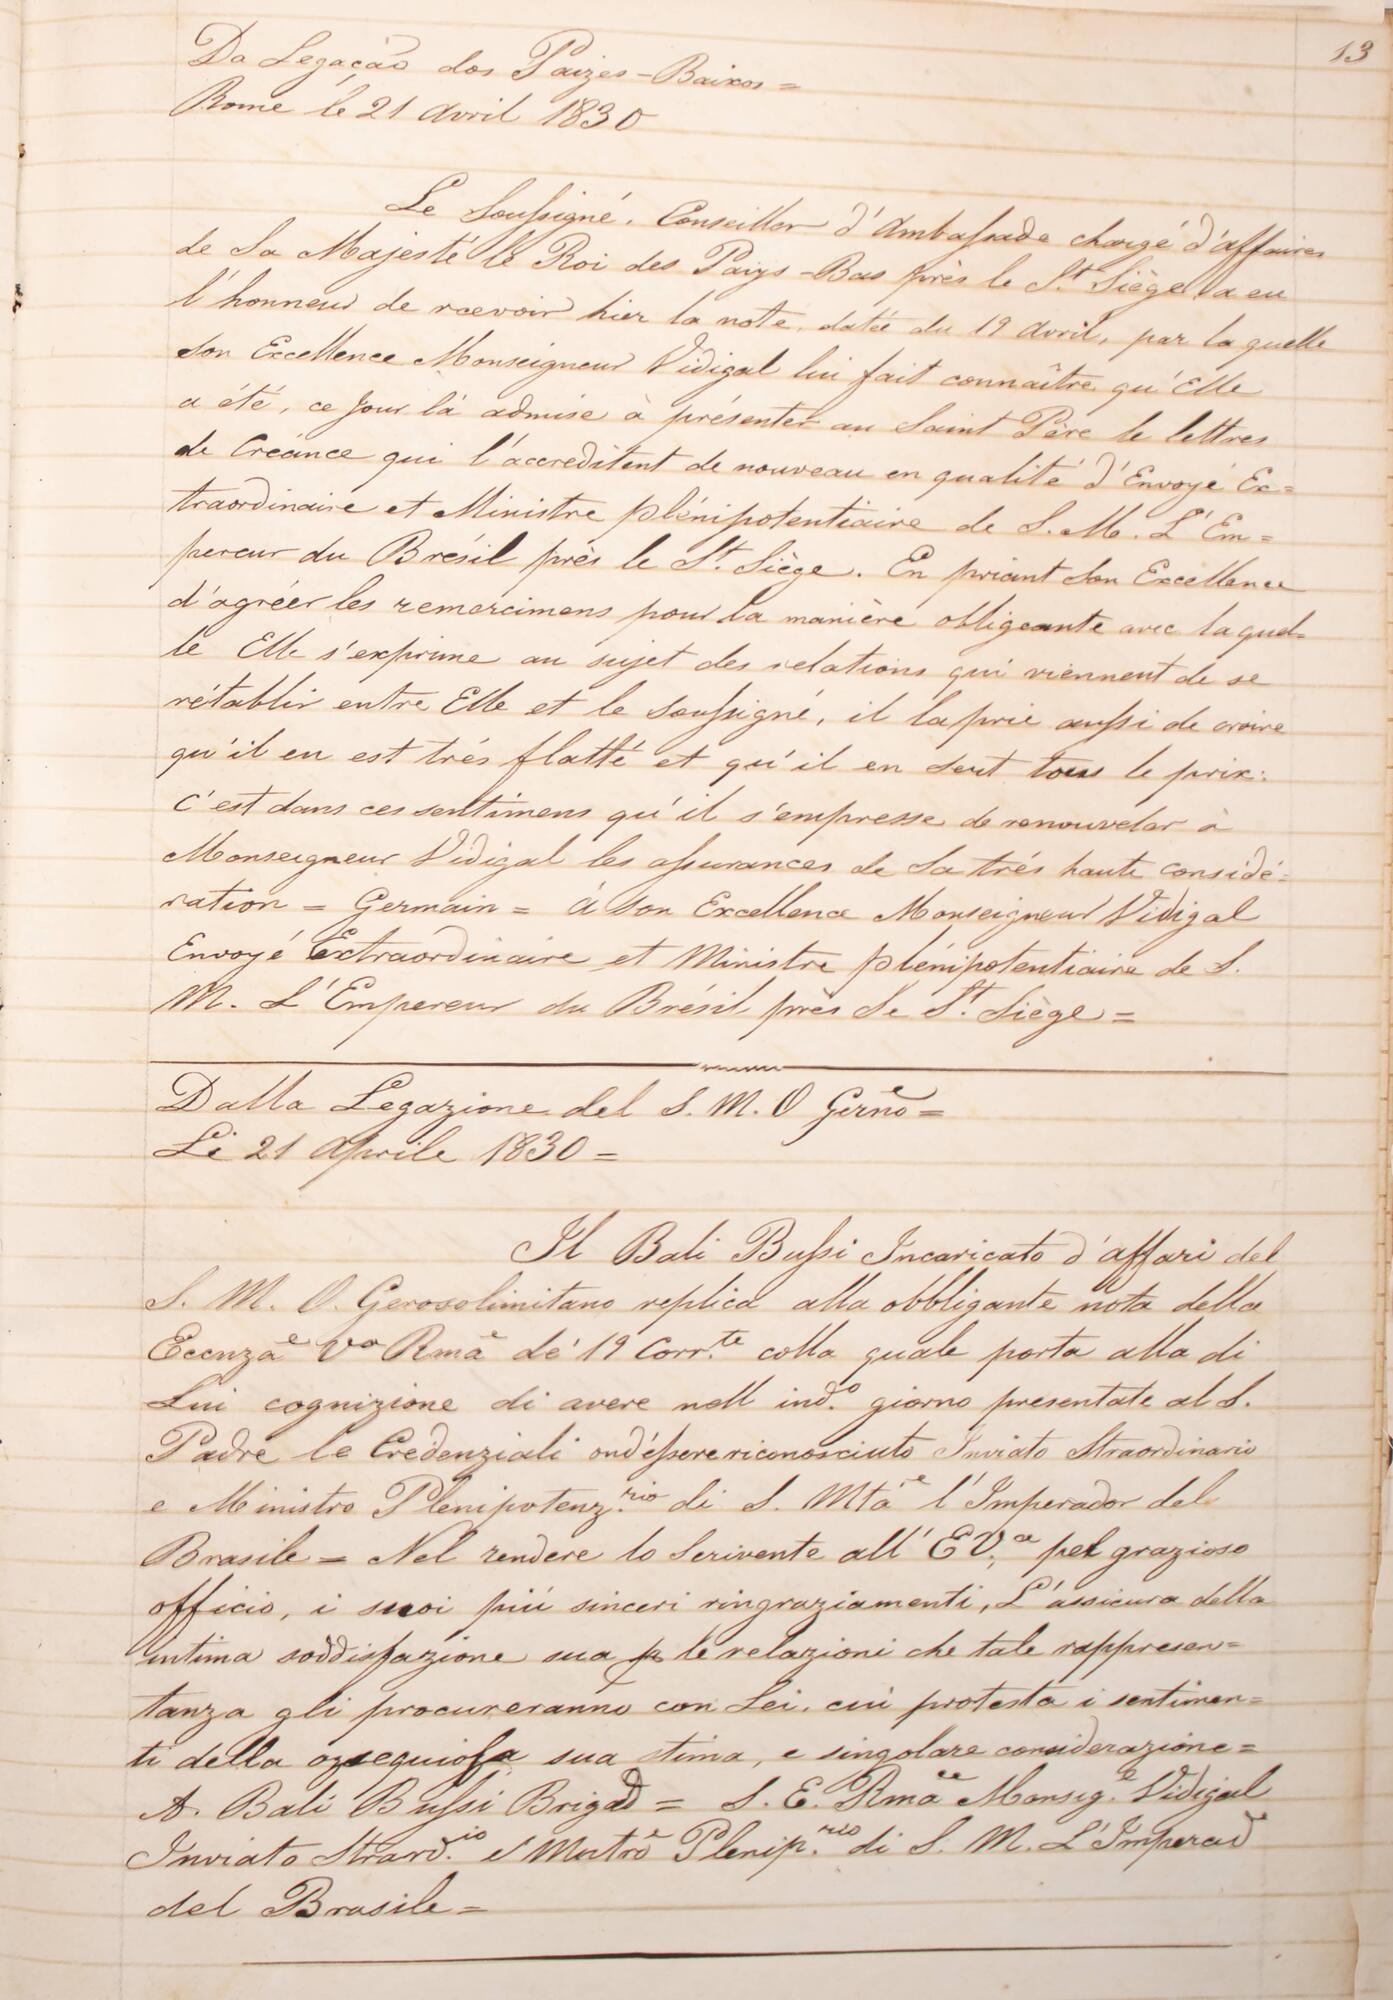 13
Da Legação dos Paizes-Baixos =
Rome le 21 Avril 1830
Le Soussigné, Conseiller d'Ambassade chargé d'affaires
de Sa Majesté le Roi des Pays-Bas près le St. Siège, a eu
l'honneur de rcevoir hier la note, datée du 19 Avril, par laquelle
Son Excellence Monseigneur Vidigal lui fait connaître qu'Elle
a été, ce jour là admise à présenter au Saint Père le lettres
de Créance qui l'accreditent de nouveau en qualité d'Envoyé Ex=
traordinaire et Ministre plénipotentiaire de S. M. L'Em=
pereur du Brésil près le St. Siège. En priant Son Excellence
d'agréer les remercimens pour la manière obligeante avec laquel=
le Elle s'exprime au sujet des relations qui viennent de se
rétablir entre Elle et le Soussigné, il la prie aussi de croire
qu'il en est trés flatté et qu'il en sent tous le prix:
C'est dans ces sentimens qu'il s'empresse de renouveler à
Monseigneur Vidigal les assurances de Sa trés haute considé=
ration = Germain = á Son Excellence Monseigneur Vidigal
Envoyé Extraordinaire et Ministre plénipotentiaire de S.
M. L'Empereur du Brésil près Le St. Siège =
Dalla Legazione del S. M. O Gerno͠e =
Li 21 Aprile 1830 =
Il Bali Bussi Incaricato d'affari del
S. M. O. Gerosolimitano replica alla obbligante nota della
Eccnza͠e Va Rma͠e de' 19 Corr.te colla quale porta alla di
Lui cognizione di avere nell ind.o giorno presentate al S.
Padre le Credenziali ond'éssere riconosciuto Inviato Straordinario
e Ministro Plenipotenz.rio di S. Mtá͠e l'Imperador del
Brasile = Nel rendere lo Scrivente all' E V.a pel grazioso
officio, i suoi piú sinceri ringraziamenti, L'assicura della
intima soddisfazione sua p le relazioni che tale rappresen=
tanza gli procureranno con Lei, cui protesta i sentimen=
ti della ozsequiosa sua stima, e singolare considerazione =
A. Bali Bussi Brigad͠ = S. E. Rma͠ Monsig.e Vidigal
Inviato Strard.io e Mntro͠e Plenip.rio di S. M. L'Imperad͠
del Brasile =